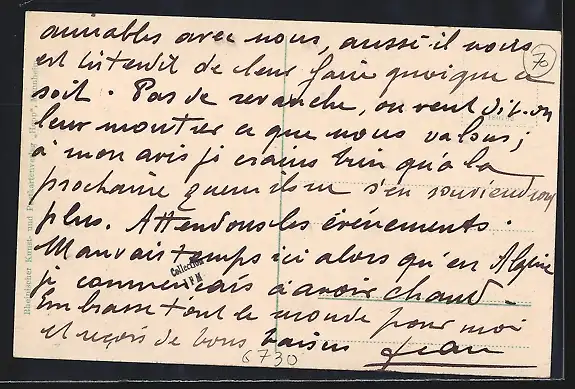 aimables avec nous, aussi il nous
est interdit de leur faire quoique ce
soit. Pas de revanche, on veut dit-on
leur montrer ce que nous valons ;
à mon avis je crains bien qu'à la
prochaine guerre ils ne s'en souviendront
plus. Attendons les évènements.
Mauvais temps ici alors qu'en Algérie
je commençais à avoir chaud.
Embrasse tout le monde pour moi
et reçois de bons baisers Jean
70
Collection
6730
Rheinischer Kunst- und Postkartenverlag